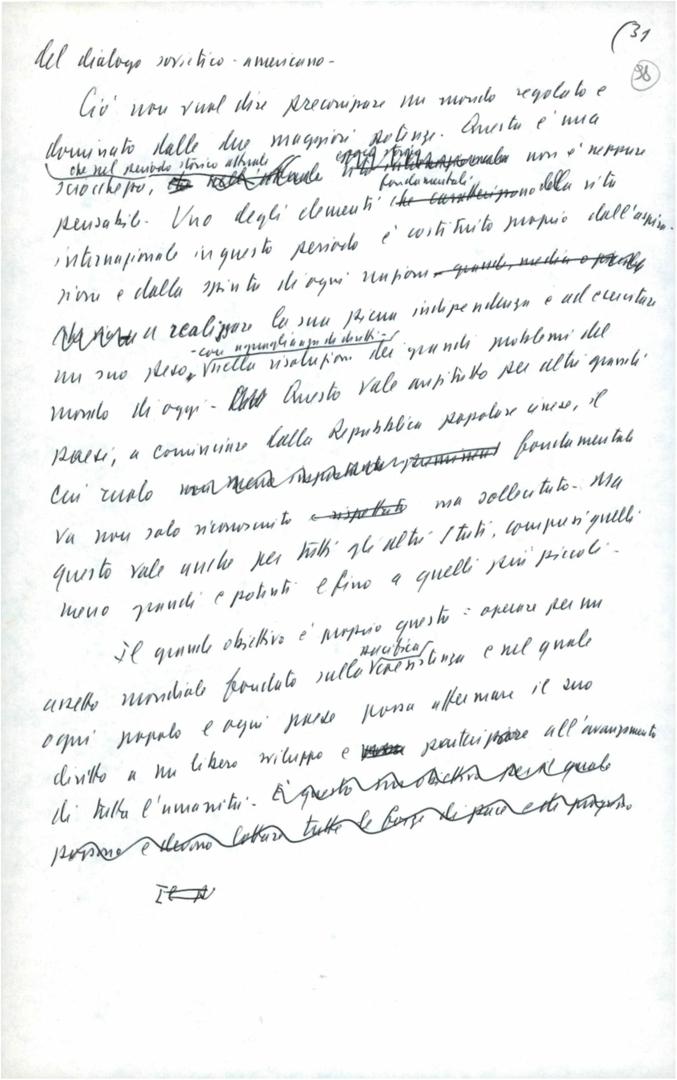 (31
38
del dialogo sovietico-americano-
Ciò non vuol dire preconizzare un mondo regolato e
dominato dalle due maggiori potenze. Questa è una
che nel periodo storico attuale
sciocchezza, non è neppure
fondamentali
pensabile. Uno degli elementi che caratterizzano della vita
internazionale in questo periodo è costituito proprio dall'aspira-
zione e dalla spinta di ogni nazione - grande, media o piccola
a realizzare la sua piena indipendenza e ad esercitare
- con uguaglianza di diritti -
un suo peso, nella risoluzione dei grandi problemi del
mondo di oggi - Questo vale anzitutto per altri grandi
paesi, a cominciare dalla Repubblica popolare cinese, il
cui ruolo fondamentale
va non solo riconosciuto e rispettato ma sollecitato. Ma
questo vale anche per tutti gli altri Stati, compresi quelli
meno grandi e potenti e fino a quelli più piccoli -
Il grande obiettivo è proprio questo: operare per un
pacifica
assetto mondiale fondato sulla coesistenza e nel quale
ogni popolo e ogni paese possa affermare il suo
diritto a un libero sviluppo e partecipare all'avanzamento
di tutta l'umanità. È questo un obiettivo per il quale
possono e devono lottare tutte le forze di pace e di progresso
Il p